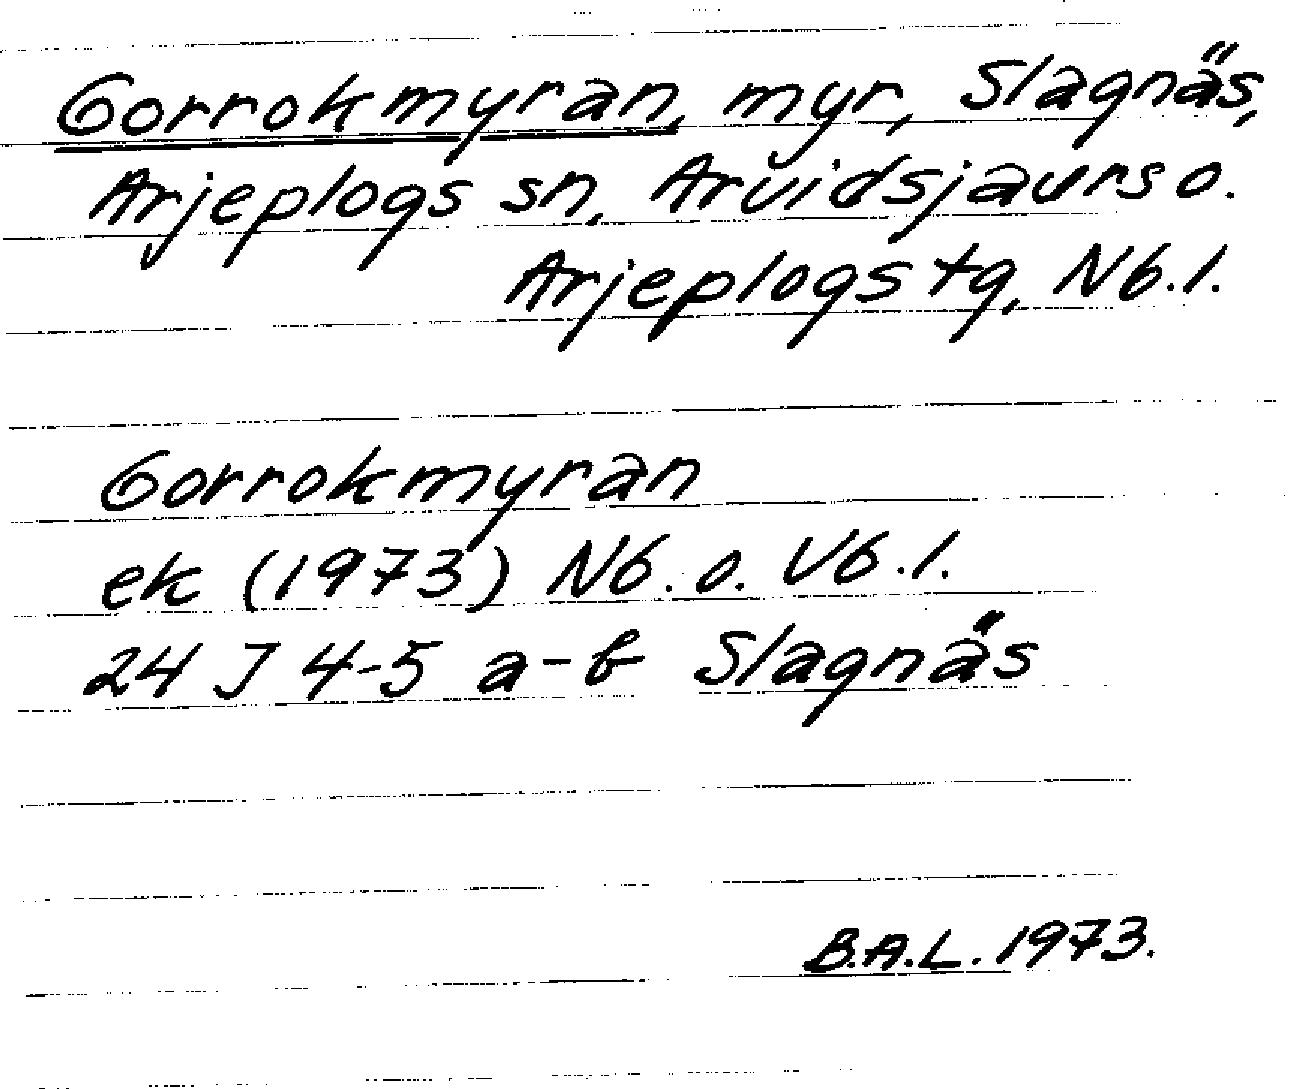 Gorrokmyran, myr, Slagnäs,
Arjeplogs sn, Arvidsjaurs o.
Arjeplogs tg, Nb.l.
Gorrokmyran
ek (1973) Nb. o. Vb.l.
24 J 4-5 a-b Slagnäs
B.A.L. 1973.